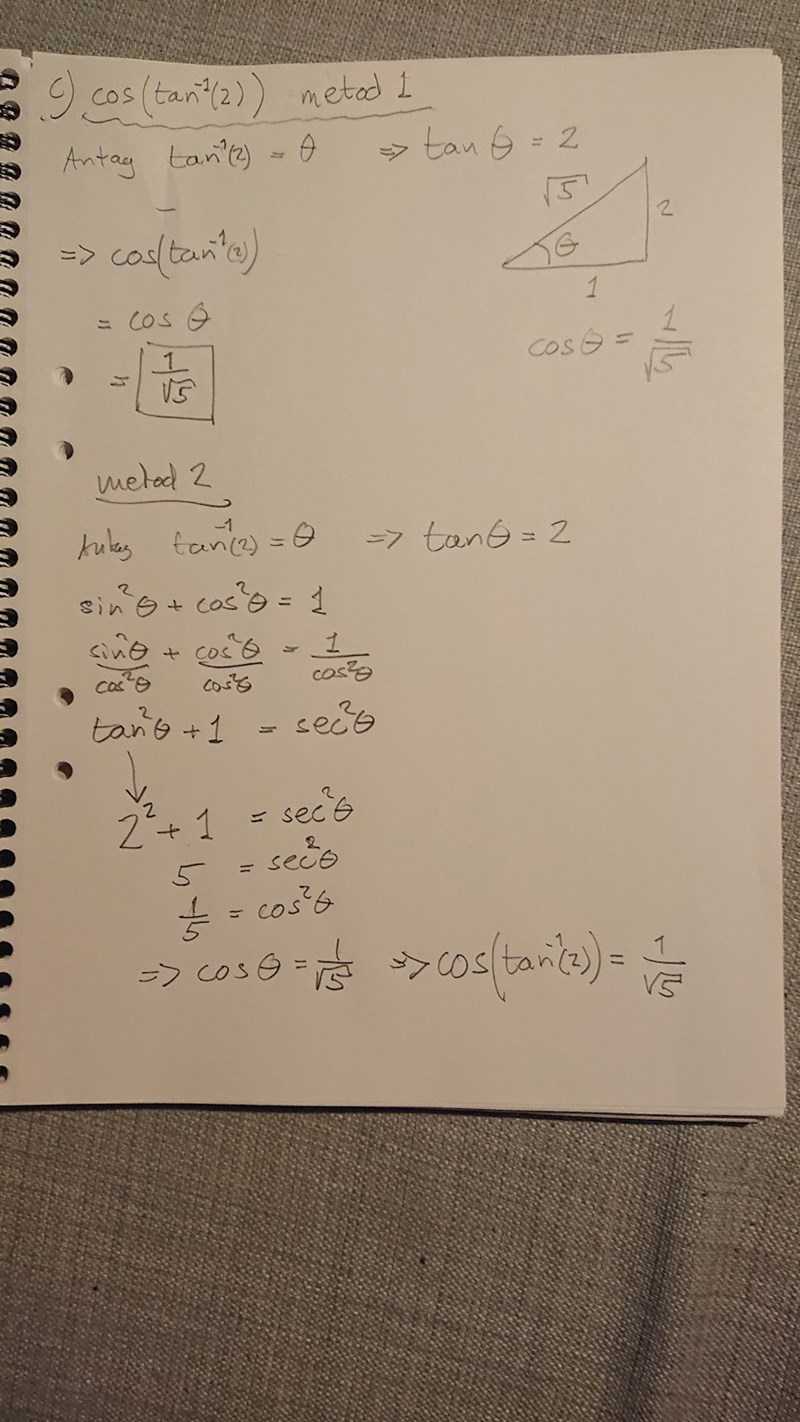 c) cos(tan⁻¹(2)) metod 1
Antag tan⁻¹(2) = θ ⇒ tan θ = 2
√5
2
θ
1
⇒ cos(tan⁻¹(2))
= cos θ
cosθ = 1/√5
= 1/√5
metod 2
Antag tan⁻¹(2) = θ ⇒ tanθ = 2
sin²θ + cos²θ = 1
sin²θ/cos²θ + cos²θ/cos²θ = 1/cos²θ
tan²θ + 1 = sec²θ
↓
2² + 1 = sec²θ
5 = sec²θ
1/5 = cos²θ
⇒ cos θ = 1/√5 ⇒ cos(tan⁻¹(2)) = 1/√5